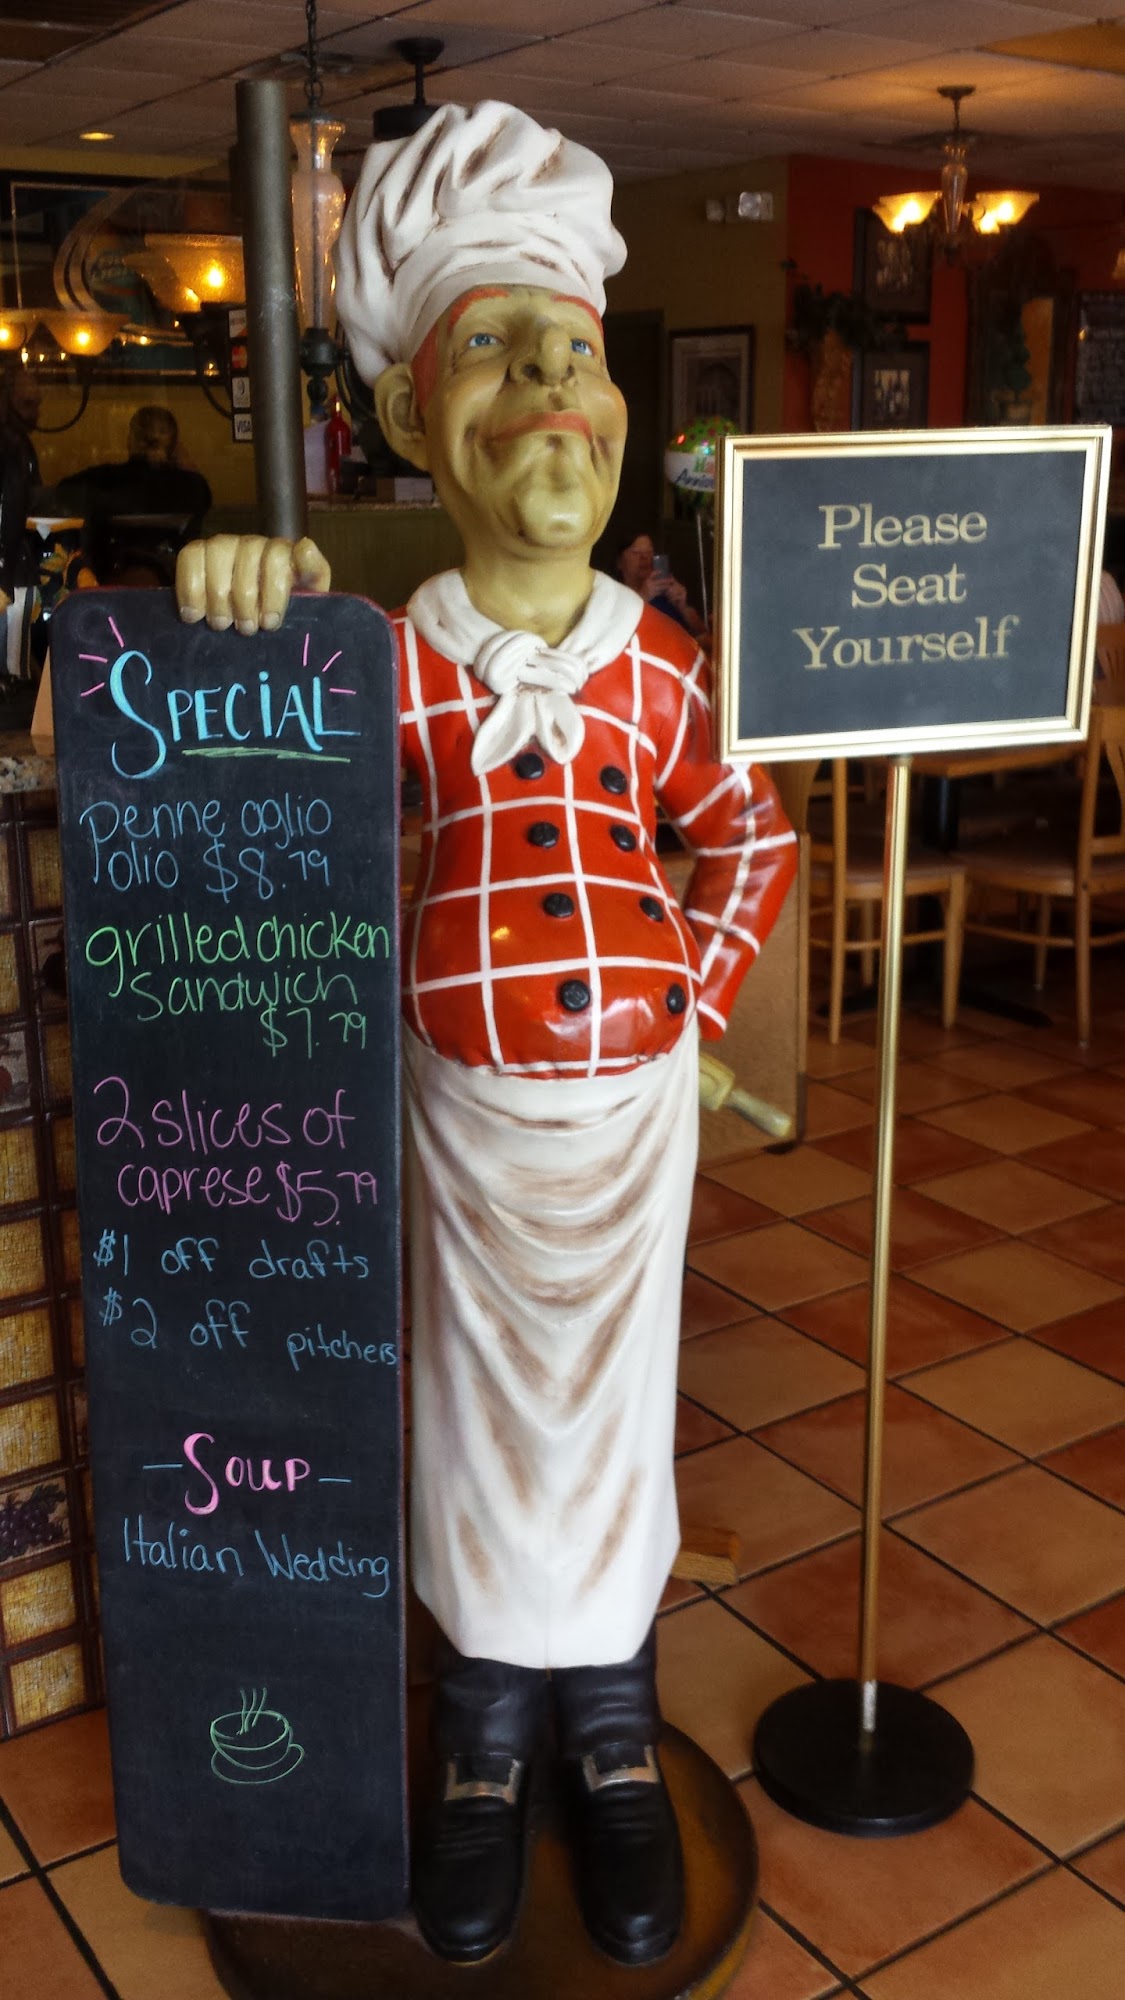 SPECiAL
penne aglio
olio $8.79
grilled chicken
sandwich
$7.79
2 slices of
caprese $5.79
$1 off drafts
$2 off pitchers
- Soup -
Italian Wedding
Please
Seat
Yourself
VISA